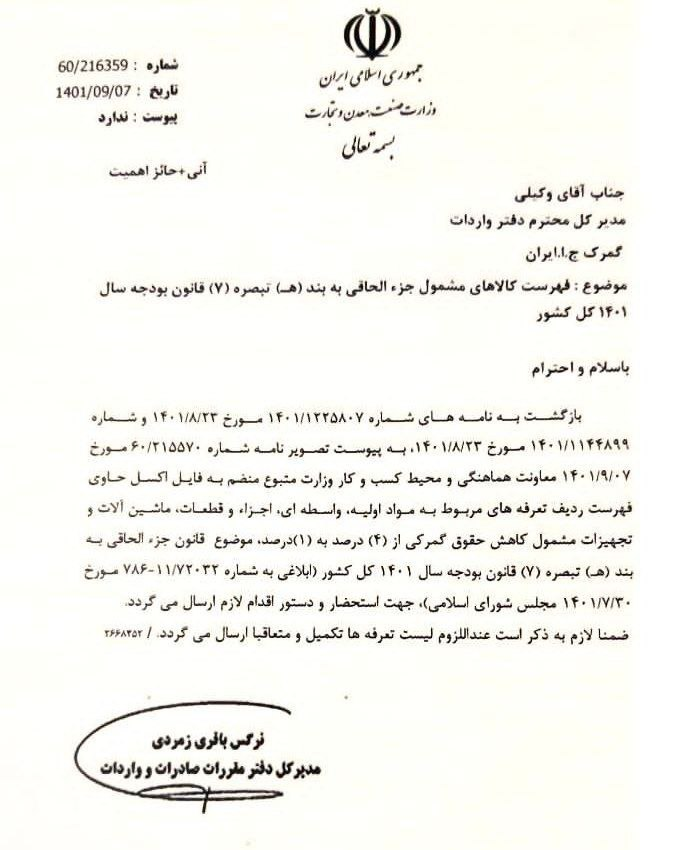 جمهوری اسلامی ایران
وزارت صنعت، معدن و تجارت
بسمه تعالی
شماره : 60/216359
تاریخ : 1401/09/07
پیوست : ندارد
آنی+حائز اهمیت
جناب آقای وکیلی
مدیر کل محترم دفتر واردات
گمرک ج.ا.ایران
موضوع : فهرست کالاهای مشمول جزء الحاقی به بند (هـ) تبصره (۷) قانون بودجه سال
۱۴۰۱ کل کشور
باسلام و احترام
بازگشت به نامه های شماره ۱۴۰۱/۱۲۲۵۸۰۷ مورخ ۱۴۰۱/۸/۲۳ و شماره
۱۴۰۱/۱۱۴۴۸۹۹ مورخ ۱۴۰۱/۸/۲۳، به پیوست تصویر نامه شماره ۶۰/۲۱۵۵۷۰ مورخ
۱۴۰۱/۹/۰۷ معاونت هماهنگی و محیط کسب و کار وزارت متبوع منضم به فایل اکسل حاوی
فهرست ردیف تعرفه های مربوط به مواد اولیه، واسطه ای، اجزاء و قطعات، ماشین آلات و
تجهیزات مشمول کاهش حقوق گمرکی از (۴) درصد به (۱)درصد، موضوع قانون جزء الحاقی به
بند (هـ) تبصره (۷) قانون بودجه سال ۱۴۰۱ کل کشور (ابلاغی به شماره ۱۱/۷۲۰۳۲-۷۸۶ مورخ
۱۴۰۱/۷/۳۰ مجلس شورای اسلامی)، جهت استحضار و دستور اقدام لازم ارسال می گردد.
ضمنا لازم به ذکر است عنداللزوم لیست تعرفه ها تکمیل و متعاقبا ارسال می گردد. / ۲۶۶۸۳۵۲
نرگس باقری زمردی
مدیرکل دفتر مقررات صادرات و واردات